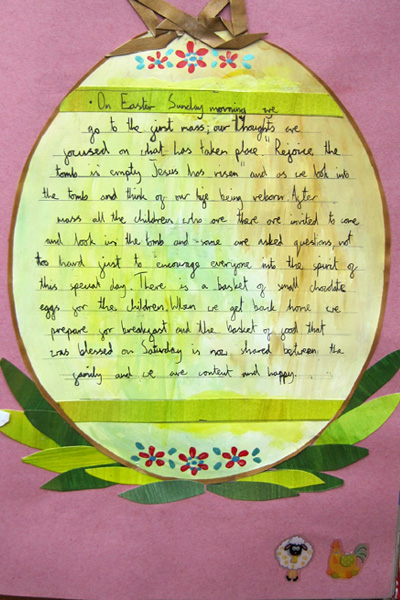 • On Easter Sunday morning we
go to the first mass; our thoughts are
focused on what has taken place "Rejoice the
tomb is empty Jesus has risen" and as we look into
the tomb and think of our life being reborn. After
mass all the children who are there are invited to come
and look in the tomb and some are asked questions, not
too hard just to encourage everyone into the spirit of
this special day. There is a basket of small chocolate
eggs for the children. When we get back home we
prepare for breakfast and the basket of food that
was blessed on Saturday is now shared between the
family and we are content and happy.